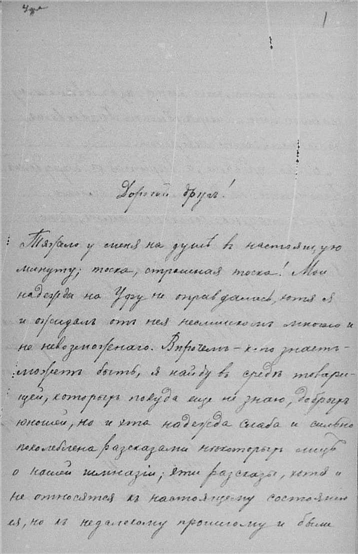 1
Дорогой другъ!
Тяжело у меня на душѣ въ настоящую
минуту; тоска, страшная тоска! Моя
надежда на Уфу не оправдалась, хотя я
и ожидалъ отъ нея не слишкомъ многаго и
не невозможнаго. Впрочемъ – кто знаетъ –
можетъ быть, я найду въ средѣ товари-
щей, которыхъ покуда еще не знаю, добрыхъ
юношей, но и эта надежда слаба и сильно
поколеблена разсказами нѣкоторыхъ лицъ
о нашей гимназіи; эти разсказы, хотя и
не относятся къ настоящему состоянію
ея, но къ недалекому прошлому и были